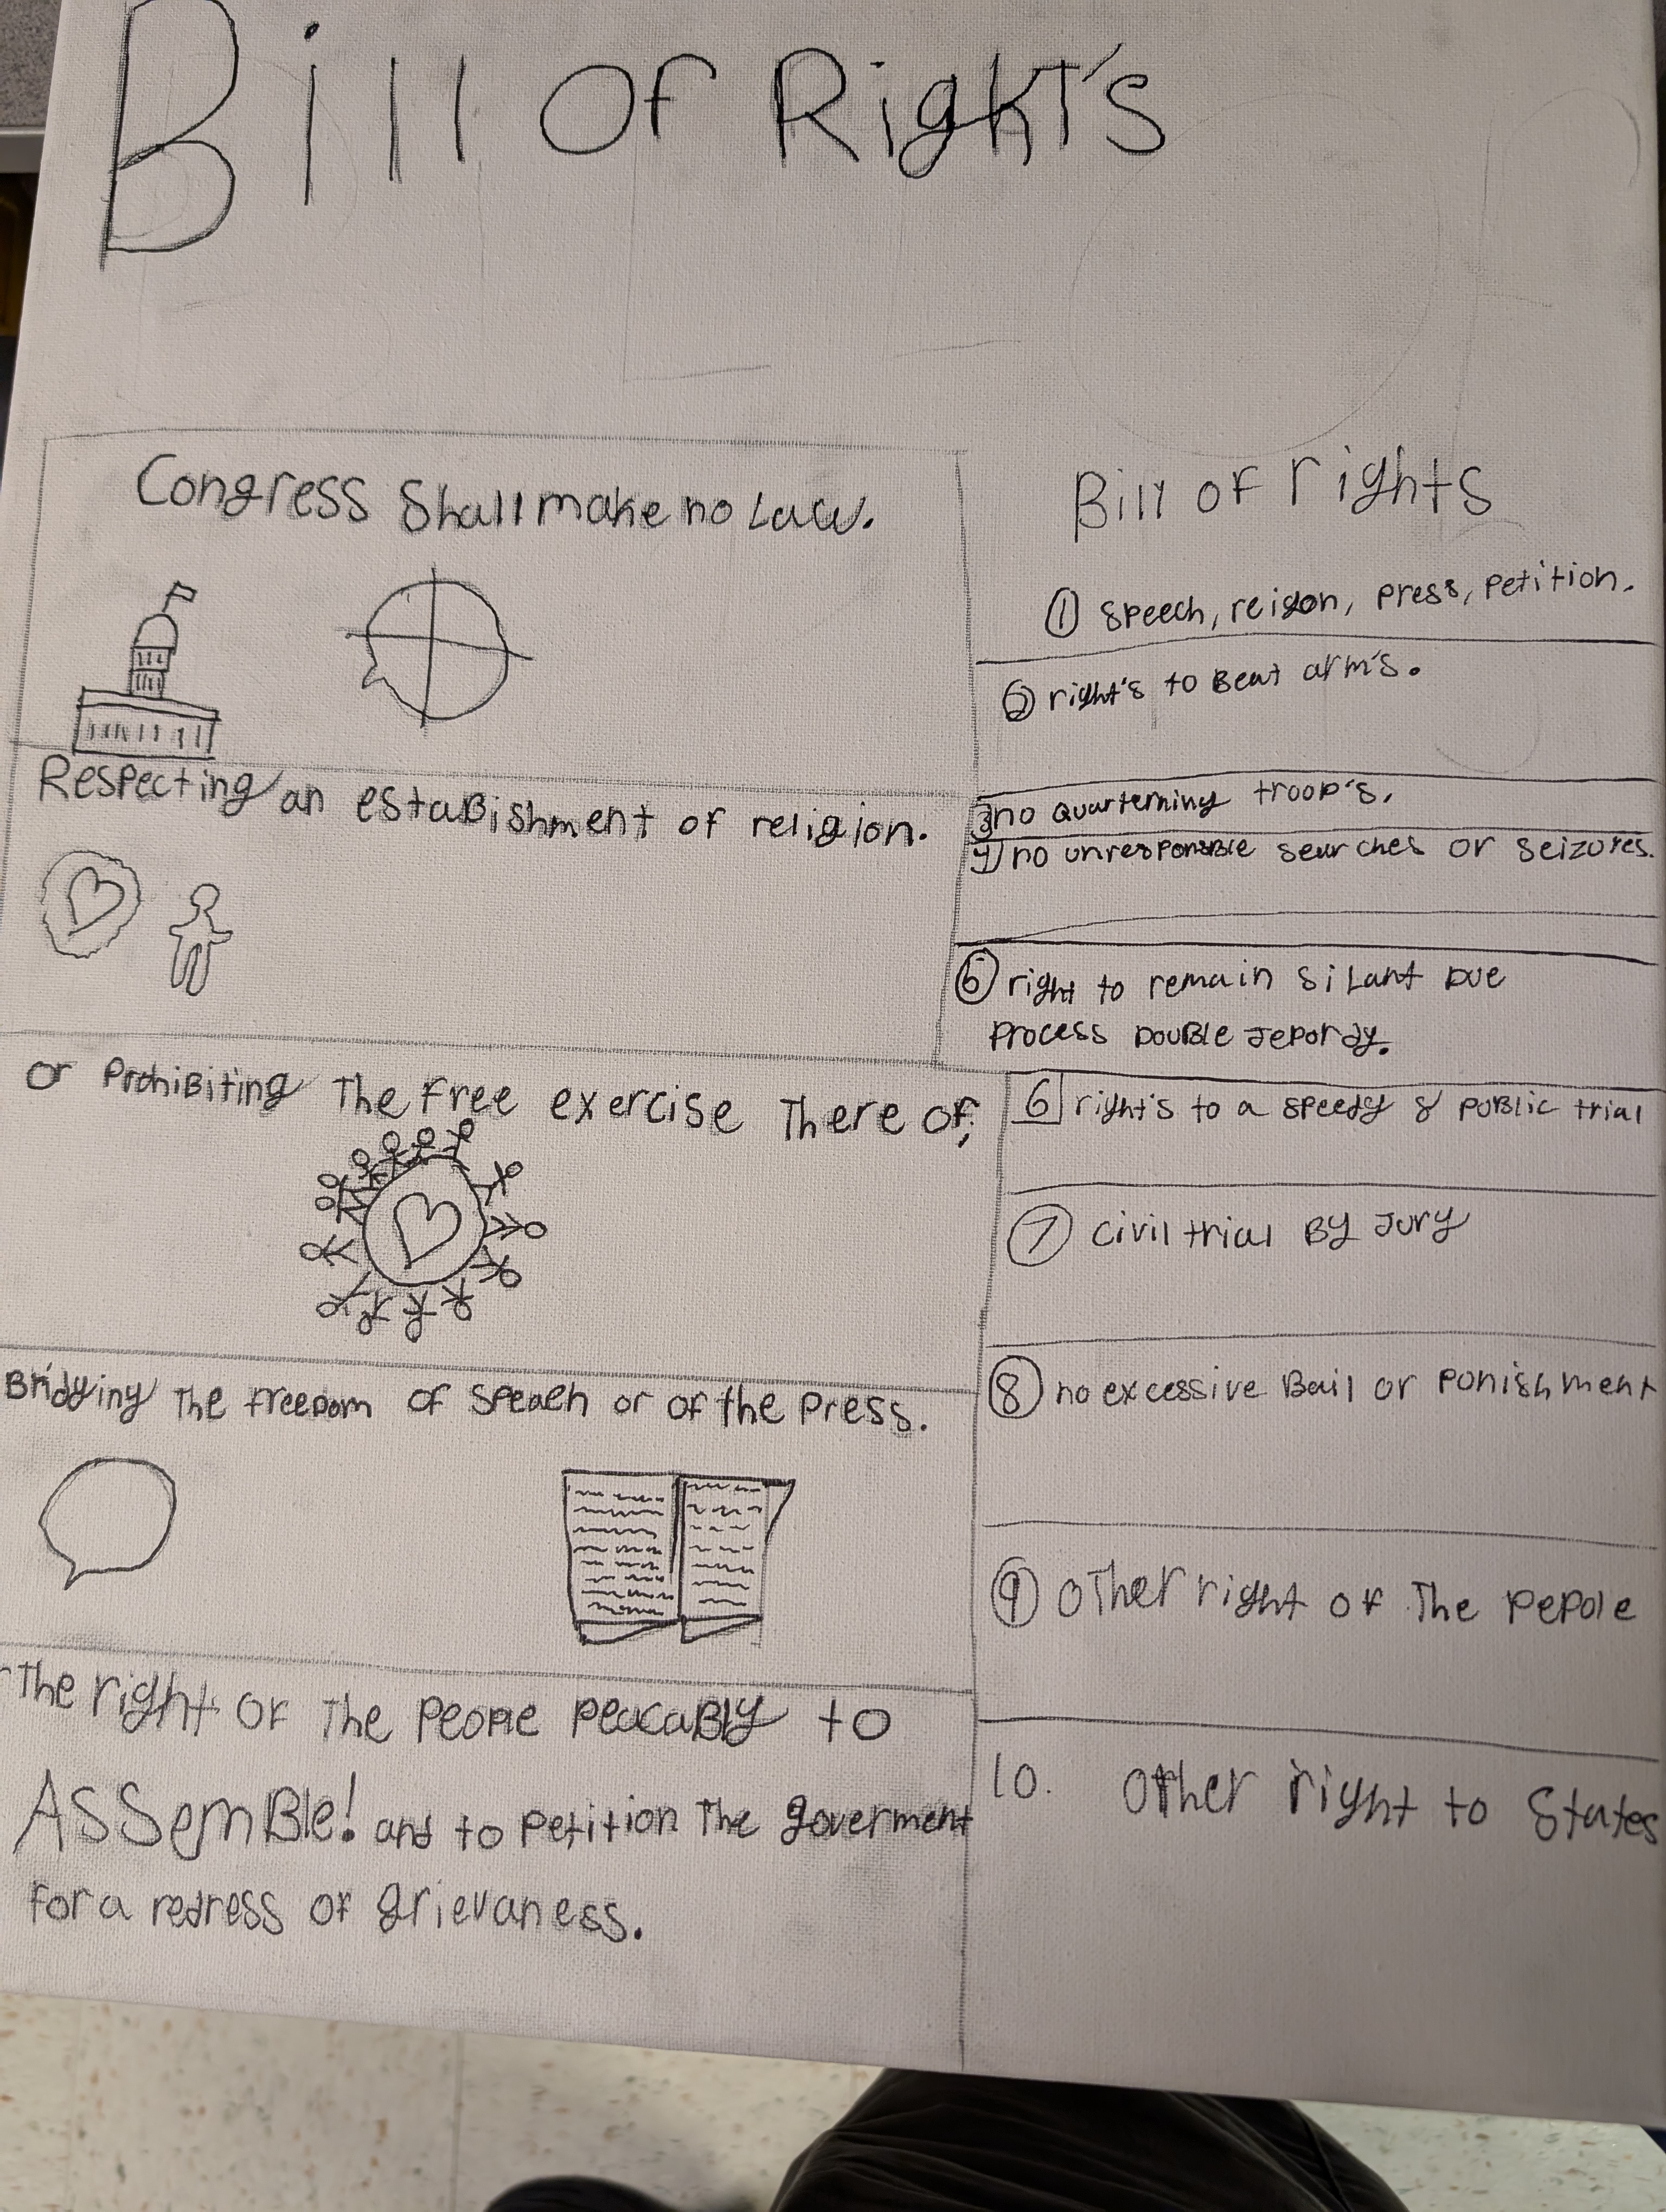 Bill Of Right's
Congress Shall make no Law.
Respecting an estaBishment of religion.
or ProhiBiting The Free exercise There of;
Bridging The freedom of Speach or of the Press.
The right of The People peacaBly to
ASSemBle! and to Petition The goverment
For a redress of grievaness.
Bill of rights
1 Speech, reigon, press, petition.
2 right's to Bear arm's.
3 no quarterning troop's.
4 no unresponsBle searches or seizures.
5 right to remain siLant Due
Process DouBle Jepordy.
6 right's to a speedy & puBlic trial
7 Civil trial By Jury
8 no excessive Bail or ponishment
9 Other right of The Pepole
10. Other right to States